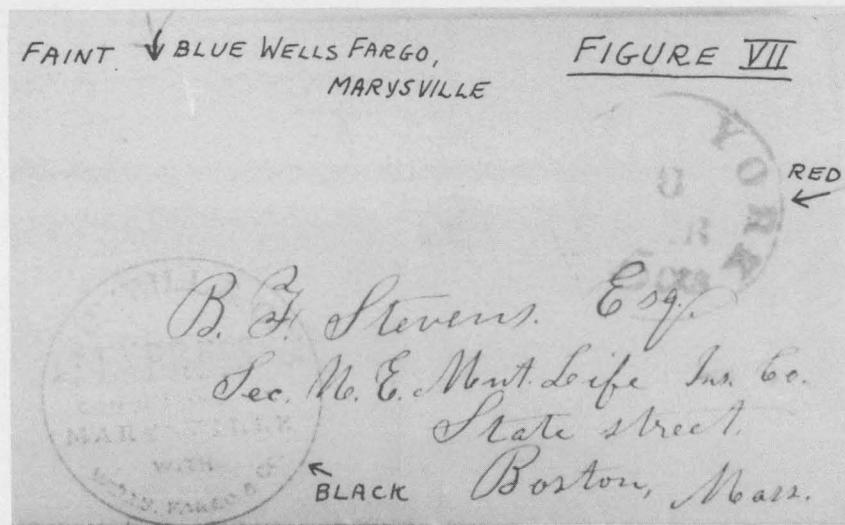 FAINT ↓ BLUE WELLS FARGO, FIGURE VII
MARYSVILLE
YORK
RED
B. F. Stevens. Esq.
Sec. N. E. Mut. Life Ins. Co.
State street.
Boston, Mass.
MARYSVILLE
WITH
WELLS, FARGO & CO
BLACK